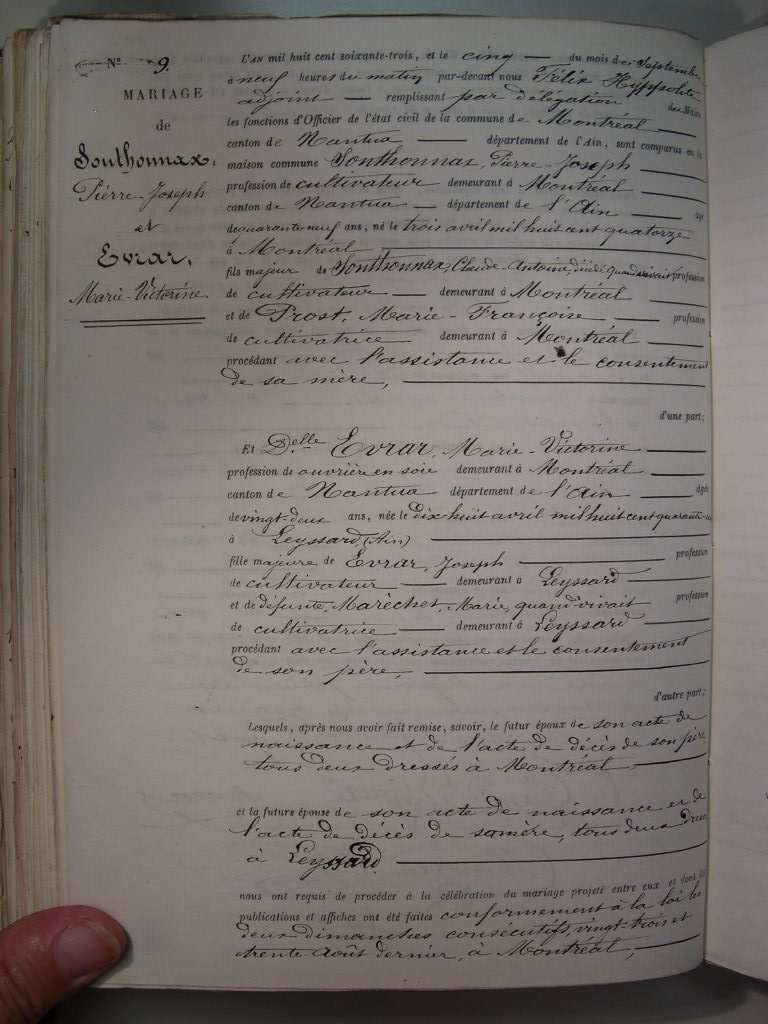 N° 9.
MARIAGE
de
Sonthonnax,
Pierre-Joseph
et
Evrar,
Marie-Victorine
L'AN mil huit cent soixante-trois, et le cinq du mois de Septembre
à neuf heures du matin par-devant nous Félix Hyppolite
adjoint remplissant par délégation du Maire
les fonctions d'Officier de l'état civil de la commune de Montréal
canton de Nantua département de l'Ain, sont comparus en la
maison commune Sonthonnax, Pierre-Joseph
profession de cultivateur demeurant à Montréal
canton de Nantua département de l'Ain âgé
de quarante neuf ans, né le trois avril mil huit cent quatorze
à Montréal
fils majeur de Sonthonnax, Claude Antoine, décédé quand vivait profession
de cultivateur demeurant à Montréal
et de Prost, Marie-Françoise profession
de cultivatrice demeurant à Montréal
procédant avec l'assistance et le consentement
de sa mère,
d'une part;
Et Delle Evrar, Marie-Victorine
profession de ouvrière en soie demeurant à Montréal
canton de Nantua département de l'Ain âgée
de vingt-deux ans, née le dix huit avril mil huit cent quarante-un
à Leyssard (Ain)
fille majeure de Evrar, Joseph profession
de cultivateur demeurant à Leyssard
et de défunte, Maréchet, Marie, quand vivait profession
de cultivatrice demeurant à Leyssard
procédant avec l'assistance et le consentement
de son père,
d'autre part;
Lesquels, après nous avoir fait remise, savoir, le futur époux de son acte de
naissance et de l'acte de décès de son père
tous deux dressés à Montréal
et la future épouse de son acte de naissance et de
l'acte de décès de sa mère, tous deux dressés
à Leyssard
nous ont requis de procéder à la célébration du mariage projeté entre eux et dont les
publications et affiches ont été faites conformement à la loi les
deux dimanches consécutifs, vingt-trois et
trente Août dernier, à Montréal,